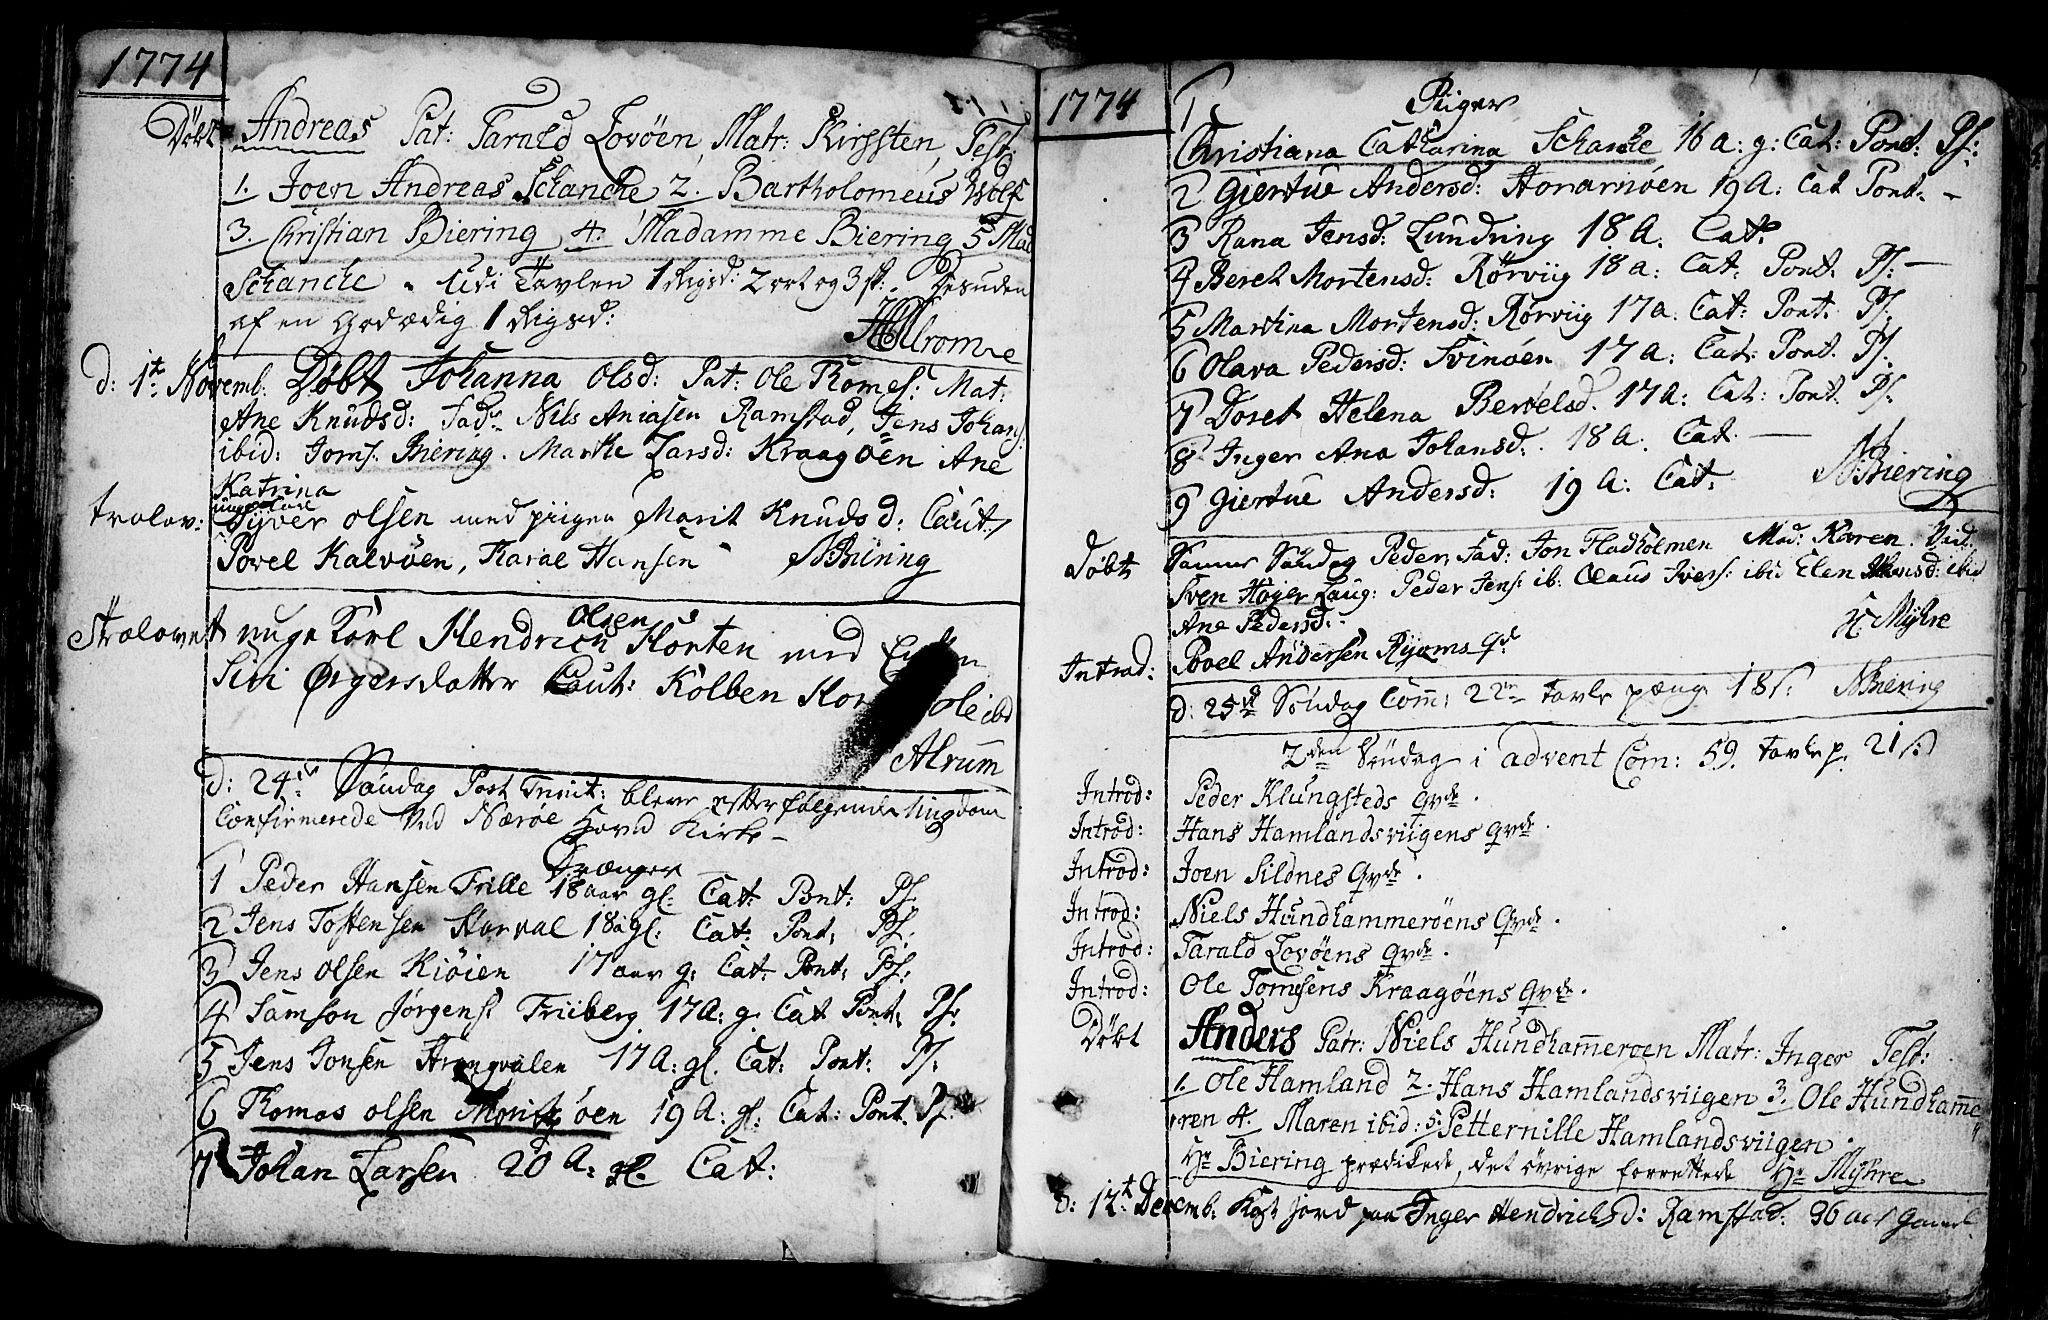 1774
Døbt Andreas Pat: Tarald Lovöen, Matr: Kirssten, Test:
1. Joen Andreas Schancke 2. Bartholomeus Wolf
3. Christian Biering 4. Madamme Biering 5 Mad
Schancke. udi Tavlen 1 Rigsd: 2 ort og 3 ſk:. Desuden
af en 1 Rigsd:
d: 1te Novemb: Døbt Johanna Olsd: Pat: Ole Thomeſ: Mat:
Ane Knudsd: Fad: Nils Aniasen Ramstad, Jens Johans:
ibid: Jomf. Biering. Marthe Larsd: Kraagöen Ane
Katrina
trolov: ungkarl Syver Olsen med pigen Marit Knudsd: Caut:
Povel Kalvöen, Karae Hansen NBiering
Olsen
Trolovet unge Karl Hendrich Horten med
Siri Ørgersdatter Caut: Kolben Ole ibd
Alrum
d: 24de Søndag Post Trinit: bleve efterfølgende Ungdom
Confirmerede Ved Nærøe Hovd Kirke -
Drænger
1 Peder Hansen Trille 18 aar gl: Cat: Pont: Pſ.
2 Jens Tostensen Horval 18 a gl: Cat: Pont: Pſ:
3 Jens Olsen Kiöien 17 aar g: Cat: Pont: Pſ:
4 Samson Jørgensſ Friiberg 17 A: g. Cat Pont: Pſ:
5 Jens Jonsen Strangvalen 17 A: gl. Cat: Pont: Pſ:
6 Thomas Olsen Moritzöen 19 A: gl: Cat: Pont. Pſ:
7 Johan Larsen 20 A: gl. Cat:
1774
Piger
1 Christiana Catharina Schancke 16 a: g: Cat: Pont: Pſ:
2 Giertue Andersd: 19 A: Cat Pont: -
3 Rana Jensd: Lundring 18 A. Cat:
4 Beret Mortensd: Rørviig 18 a: Cat: Pont. Pſ: -
5 Martina Mortensd: Rørviig 17 a: Cat: Pont: Pſ.
6 Olava Pedersd: Svinöen 17 a: Cat: Pont. Pſ.
7 Doret Helena Bertelsd. 17 A: Cat: Pont. Pſ.
8 Inger Ana Johansd: 18 A. Cat. -
9 Giertue Andersd: 19 A: Cat: NBiering
Døbt Samme Søndag Peder, Fad: Jon Fladholmen Mod: Karen. Vid.
Sven Høyer Laug: Peder Jens: ib: Claus Ivers: ibid Elen ibid
Ane Pedersd: H. Myhre
Introd: Povel Andersen Ryems Qd
d: 25de Søndag Com: 22 Tavle pæng 18 ſ: NBiering
2den Søndag i advent Com: 59. Tavle p. 21 ſ:
Introd: Peder Klungsteds Qvde.
Introd: Hans Hamlandsviigens Qvde.
Introd: Joen Sildnes Qvde.
Introd: Niels Hundhammeröens Qvde.
Introd: Tarald Lovöens Qvde.
Introd: Ole Tomesens Kraagöens Qvde.
Døbt Anders Patr: Niels Hundham̅eröen Matr: Inger Test:
1. Ole Hamland 2. Hans Hamlandsviigen 3. Ole Hundham̅e
ren 4. Maren ibid: 5: Petternille Hamlandsviigen.
Hr Biering prædikede, det øvrige forrettede Hr Myhre
d: 12te Decemb: Kast Jord paa Inger Hendrichsd: Ramstad: 36 aar gamel.